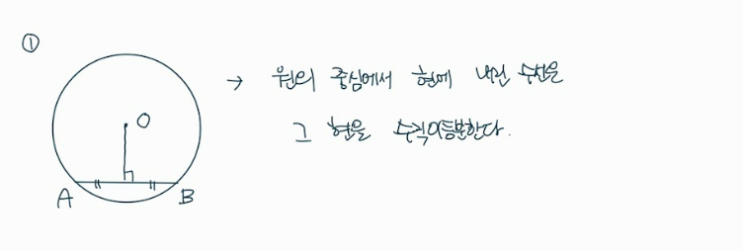 ①
→ 원의 중심에서 현에 내린 수선은
그 현을 수직이등분한다.
O
A
B